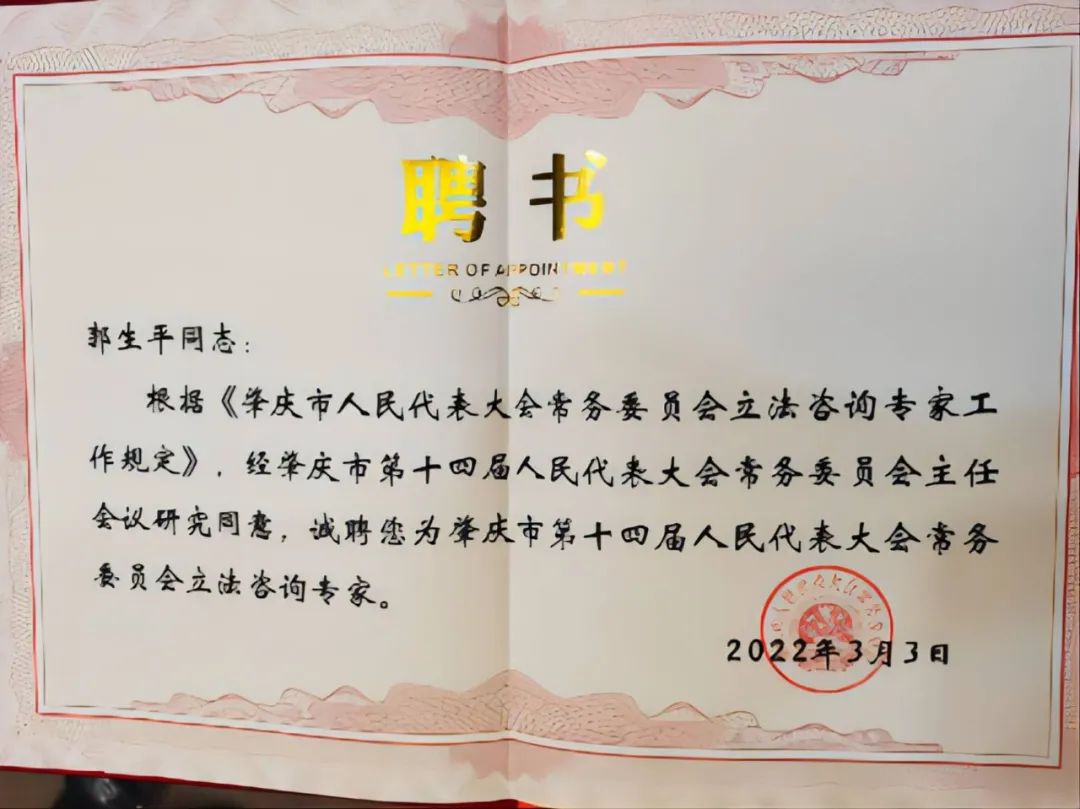 聘书
LETTER OF APPOINTMENT
郭生平同志：
根据《肇庆市人民代表大会常务委员会立法咨询专家工
作规定》，经肇庆市第十四届人民代表大会常务委员会主任
会议研究同意，诚聘您为肇庆市第十四届人民代表大会常务
委员会立法咨询专家。
2022年3月3日